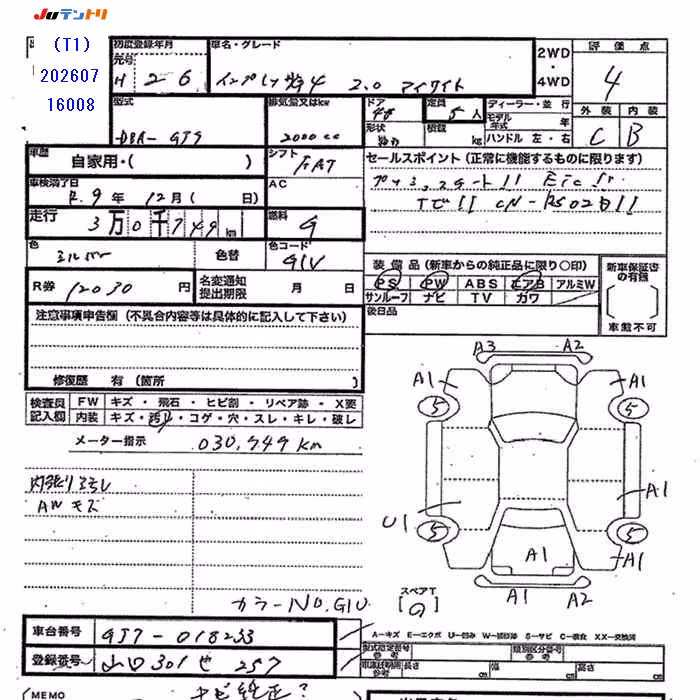 JUテントリ
(T1)
202607
16008
初度登録年月
元号
H 26
車名・グレード
インプレッサG4 2.0 アイサイト
2WD
・
4WD
評価点
4
外装 内装
C B
型式
DBA-GJ7
排気量又はkw
2000cc
ドア
4D
形状
定員
5人
積載
kg
ディーラー・並行
モデル年式
年
ハンドル 左・右
車歴
自家用・( )
シフト
FAT
車検満了日
R.9年 12月( 日)
AC
走行
3万0千749km
燃料
G
色
シルバー
色替
色コード
G1U
R券
12030円
名変通知
提出期限
月 日
セールスポイント(正常に機能するものに限ります)
プッシュスタート!! ETC!!
TV!! CN-RS02D!!
装備品(新車からの純正品に限り○印)
PS PW ABS エアB アルミW
サンルーフ ナビ TV カワ
後日品
新車保証書
の有無
車載不可
注意事項申告欄(不具合内容等は具体的に記入して下さい)
修復歴 有(箇所 )
検査員
記入欄
FW キズ・飛石・ヒビ割・リペア跡・X要
内装 キズ・汚レ・コゲ・穴・スレ・キレ・破レ
メーター指示 030,749km
内張りヨゴレ
AWキズ
カラーNO.G1U
A3 A2
A1 A1
5 5
U1 A1
5 5
A1 A1
A1 A2
スペアT
車台番号 GJ7-018233
登録番号 山口301せ257
A-キズ E-エクボ U-凹み W-補修跡 S-サビ C-腐食 XX-交換済
型式指定番号
参考
類別区分番号
参考
車体証明用
参考
長さ 幅 高さ
MEMO
ナビ純正?